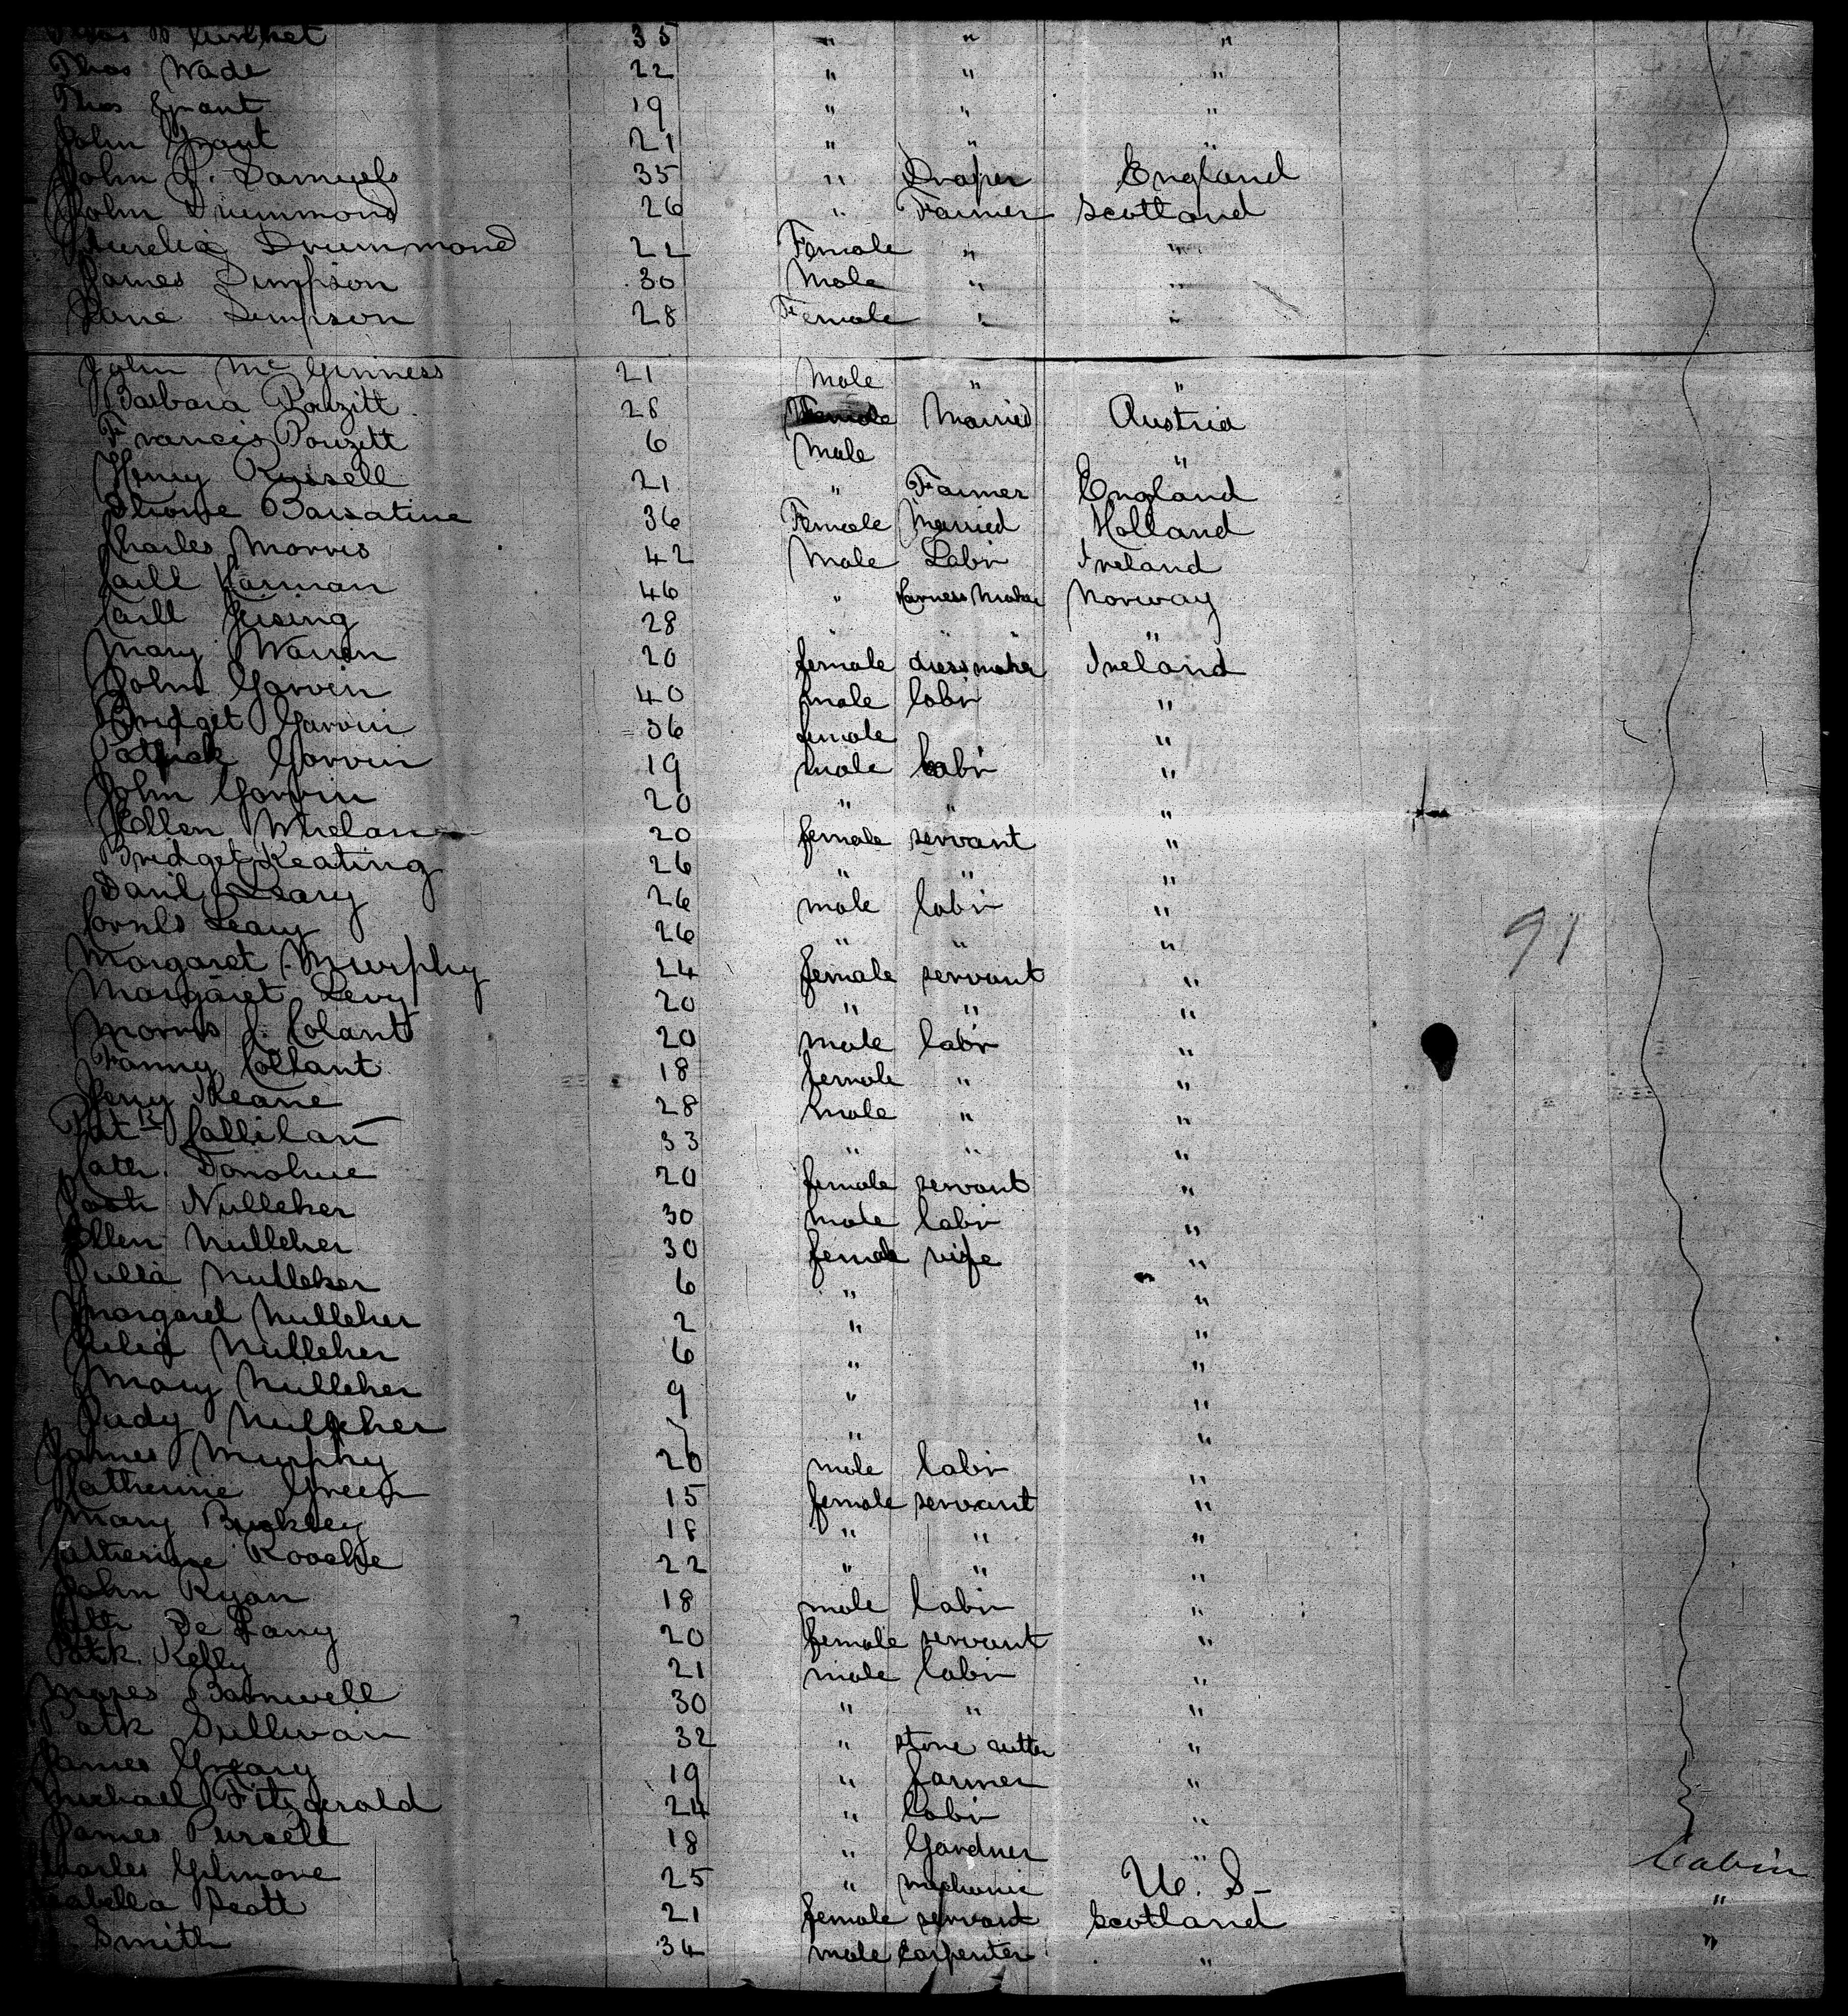 Thos Plunket 35 " " "
Thos Wade 22 " " "
Thos Grant 19 " " "
John Grant 21 " " "
John Samuels 35 " Draper England
John Drummond 26 " Farmer Scotland
Drummond 22 Female " "
James Simpson 30 Male " "
Jane Simpson 28 Female " "
John McGinness 21 Male " "
Barbara Pouzitt 28 Female Married Austria
Francis Pouzitt 6 Male "
Henry Russell 21 " Farmer England
36 Female Married Holland
Charles Morris 42 Male Labr Ireland
Carll 46 " Harness Maker Norway
Carll 28 " " "
Mary Warren 20 female dressmaker Ireland
John Garvin 40 male labr "
Bridget Garvin 36 female "
Patrick Garvin 19 male labr "
John Garvin 20 " " "
Ellen Whelan 20 female servant "
Bridget Keating 26 " " "
Danl Leary 26 male labr "
Cornls Leary 26 " " "
91
Margaret Murphy 24 female servant "
Margaret Levy 20 " " "
Morris J. Colantt 20 male labr "
Fanny Collant 18 female " "
Jerry Keane 28 male " "
Patk Callilan 33 " " "
Cath. Donohue 20 female servant "
Nulleher 30 male labr "
Ellen Nulleher 30 female wife "
Julia Nulleher 6 " "
Margaret Nulleher 2 " "
Julia Nulleher 6 " "
Mary Nulleher 9 " "
Judy Nulleher " "
James Murphy 20 male labr "
Catherine Green 15 female servant "
Mary Buckley 18 " " "
Catherine Rooche 22 " " "
John Ryan 18 male labr "
Cath De Lany 20 female servant "
Patk. Kelly 21 male labr "
Moses Barnwell 30 " " "
Patk Sullivan 32 " stone cutter "
James Greary 19 " farmer "
Michael Fitzgerald 24 " labr "
James Pursell 18 " Gardner "
Charles Gilmore 25 " mechanic U. S- Cabin
Isabella Scott 21 female servant Scotland "
Smith 34 male carpenter " "